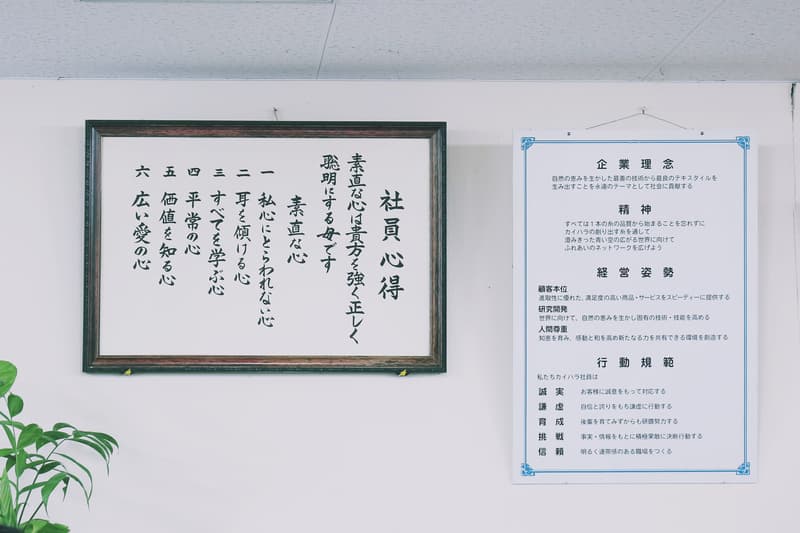 社員心得
素直な心は貴方を強く正しく
聡明にする母です
素直な心
一 私心にとらわれない心
二 耳を傾ける心
三 すべてを学ぶ心
四 平常の心
五 価値を知る心
六 広い愛の心
企業理念
自然の恵みを生かした最善の技術から最良のテキスタイルを
生み出すことを永遠のテーマとして社会に貢献する
精神
すべては1本の糸の品質から始まることを忘れずに
カイハラの創り出す糸を通して
澄みきった青い空の広がる世界に向けて
ふれあいのネットワークを広げよう
経営姿勢
顧客本位
進取性に優れた、満足度の高い商品・サービスをスピーディーに提供する
研究開発
世界に向けて、自然の恵みを生かし固有の技術・技能を高める
人間尊重
知恵を育み、感動と和を高め新たなる力を共有できる環境を創造する
行動規範
私たちカイハラ社員は
誠実 お客様に誠意をもって対応する
謙虚 自信と誇りをもち謙虚に行動する
育成 後輩を育てみずからも研鑽努力する
挑戦 事実・情報をもとに積極果敢に決断行動する
信頼 明るく連帯感のある職場をつくる